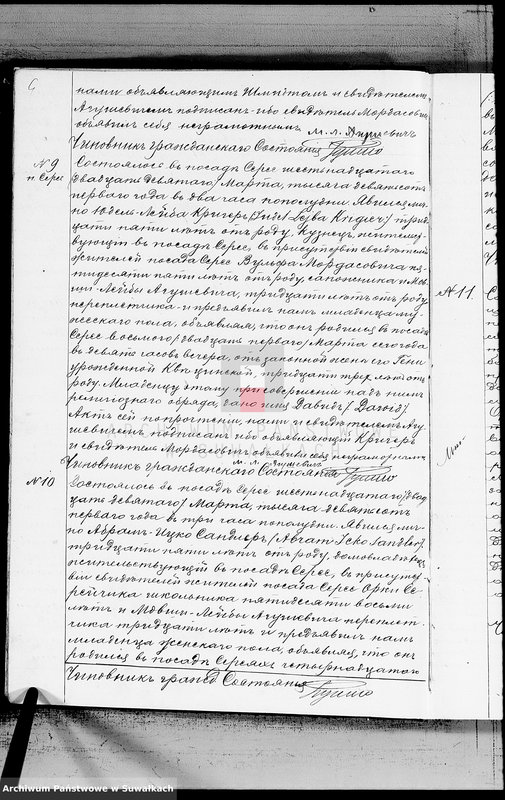 6
нами объявляющимъ Шмитомъ и свидѣтелемъ
Агушевичемъ подписанъ ибо свидѣтель Мордасовичъ
объявилъ себя неграмотнымъ
М. Л. Агушевичъ
Чиновникъ гражданскаго Состоянія
№ 9
п. Серее
Состоялось въ посадѣ Серее шестнадцатаго
/двадцать девятаго/ Марта, тысяча девятьсотъ
перваго года въ два часа пополудни. Явился лично
Юдель-Лейба Кригеръ /Judel Lejba Krigier/ тридцати
пяти лѣтъ отъ роду, кузнецъ, жительствующій
въ посадѣ Серее, въ присутствіи свидѣтелей
жителей посада Серее Вульфа Мордасовича пятидесяти
пяти лѣтъ отъ роду, сапожника и Мовши-Лейбы
Агушевича, тридцати лѣтъ отъ роду,
переплетчика и предъявилъ намъ младенца мужескаго
пола, объявляя, что онъ родился въ посадѣ
Серее восьмого /двадцать перваго/ Марта сего года
въ девять часовъ вечера, отъ законной жены его
урожденной тридцати трехъ лѣтъ отъ
роду. Младенцу этому при совершеніи надъ нимъ
религіознаго обряда дано имя Давидъ /Dawid/
Актъ сей по прочтеніи, нами и свидѣтелемъ Агушевичемъ
подписанъ ибо объявляющій Кригеръ
и свидѣтель Мордасовичъ объявили себя неграмотными
М. Л. Агушевичъ
Чиновникъ гражданскаго Состоянія
№ 10
Состоялось въ посадѣ Серее шестнадцатаго /двадцать
девятаго/ Марта, тысяча девятьсотъ
перваго года въ три часа пополудни. Явился лично
Абрамъ-Ицко Сандлеръ /Abram-Icko Sandler/
тридцати пяти лѣтъ отъ роду, домовладѣлецъ
жительствующій въ посадѣ Серее, въ присутствіи
свидѣтелей жителей посада Серее
школьника пятидесяти восьми
лѣтъ и Мовши-Лейбы Агушевича переплетчика
тридцати лѣтъ и предъявилъ намъ
младенца женскаго пола, объявляя, что онъ
родился въ посадѣ Сереяхъ четырнадцатаго
Чиновникъ гражд Состоянія
№ 11
Archiwum Państwowe w Suwałkach